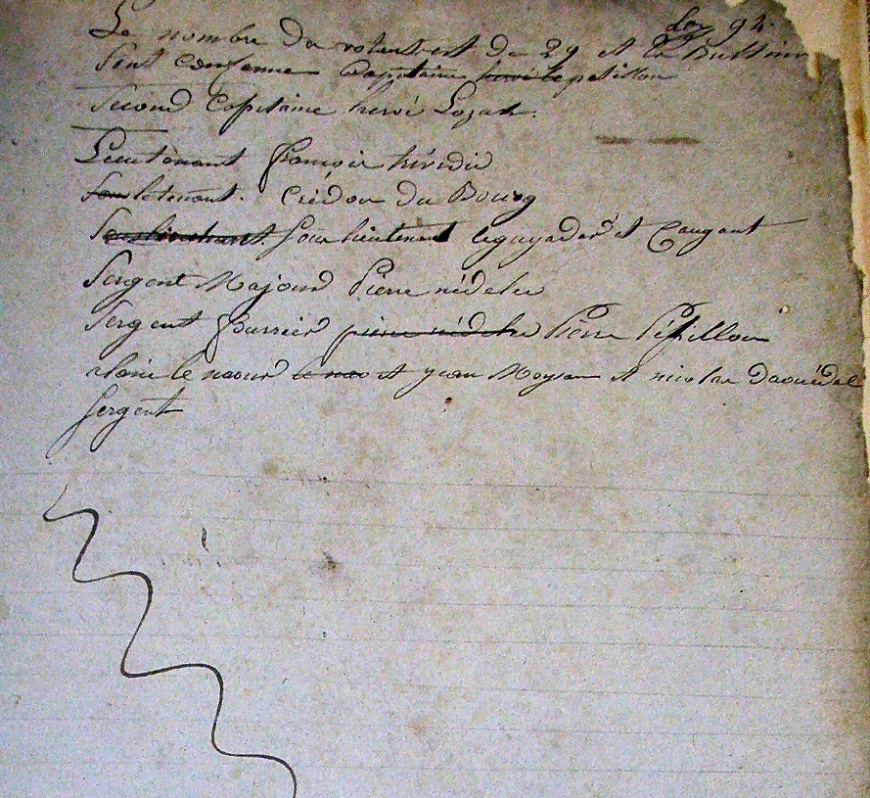 Le nombre du votent est de 29 et la Bultin 92.
sont conforme Capitaine hervé le petillon
Second Capitaine hervé Lozah.
Lieutenant françois kirédié
Soulotenant. Crédou du Bourg
Souslieutenant Souslieutenant leguyader et Caugant
Sergent Majeour Pierre nédelec
Sergent fourrier pierre nédelec Pierre Pétillon
alain le naour le nao et yean Moysan et nicolas daouédal
Sergent